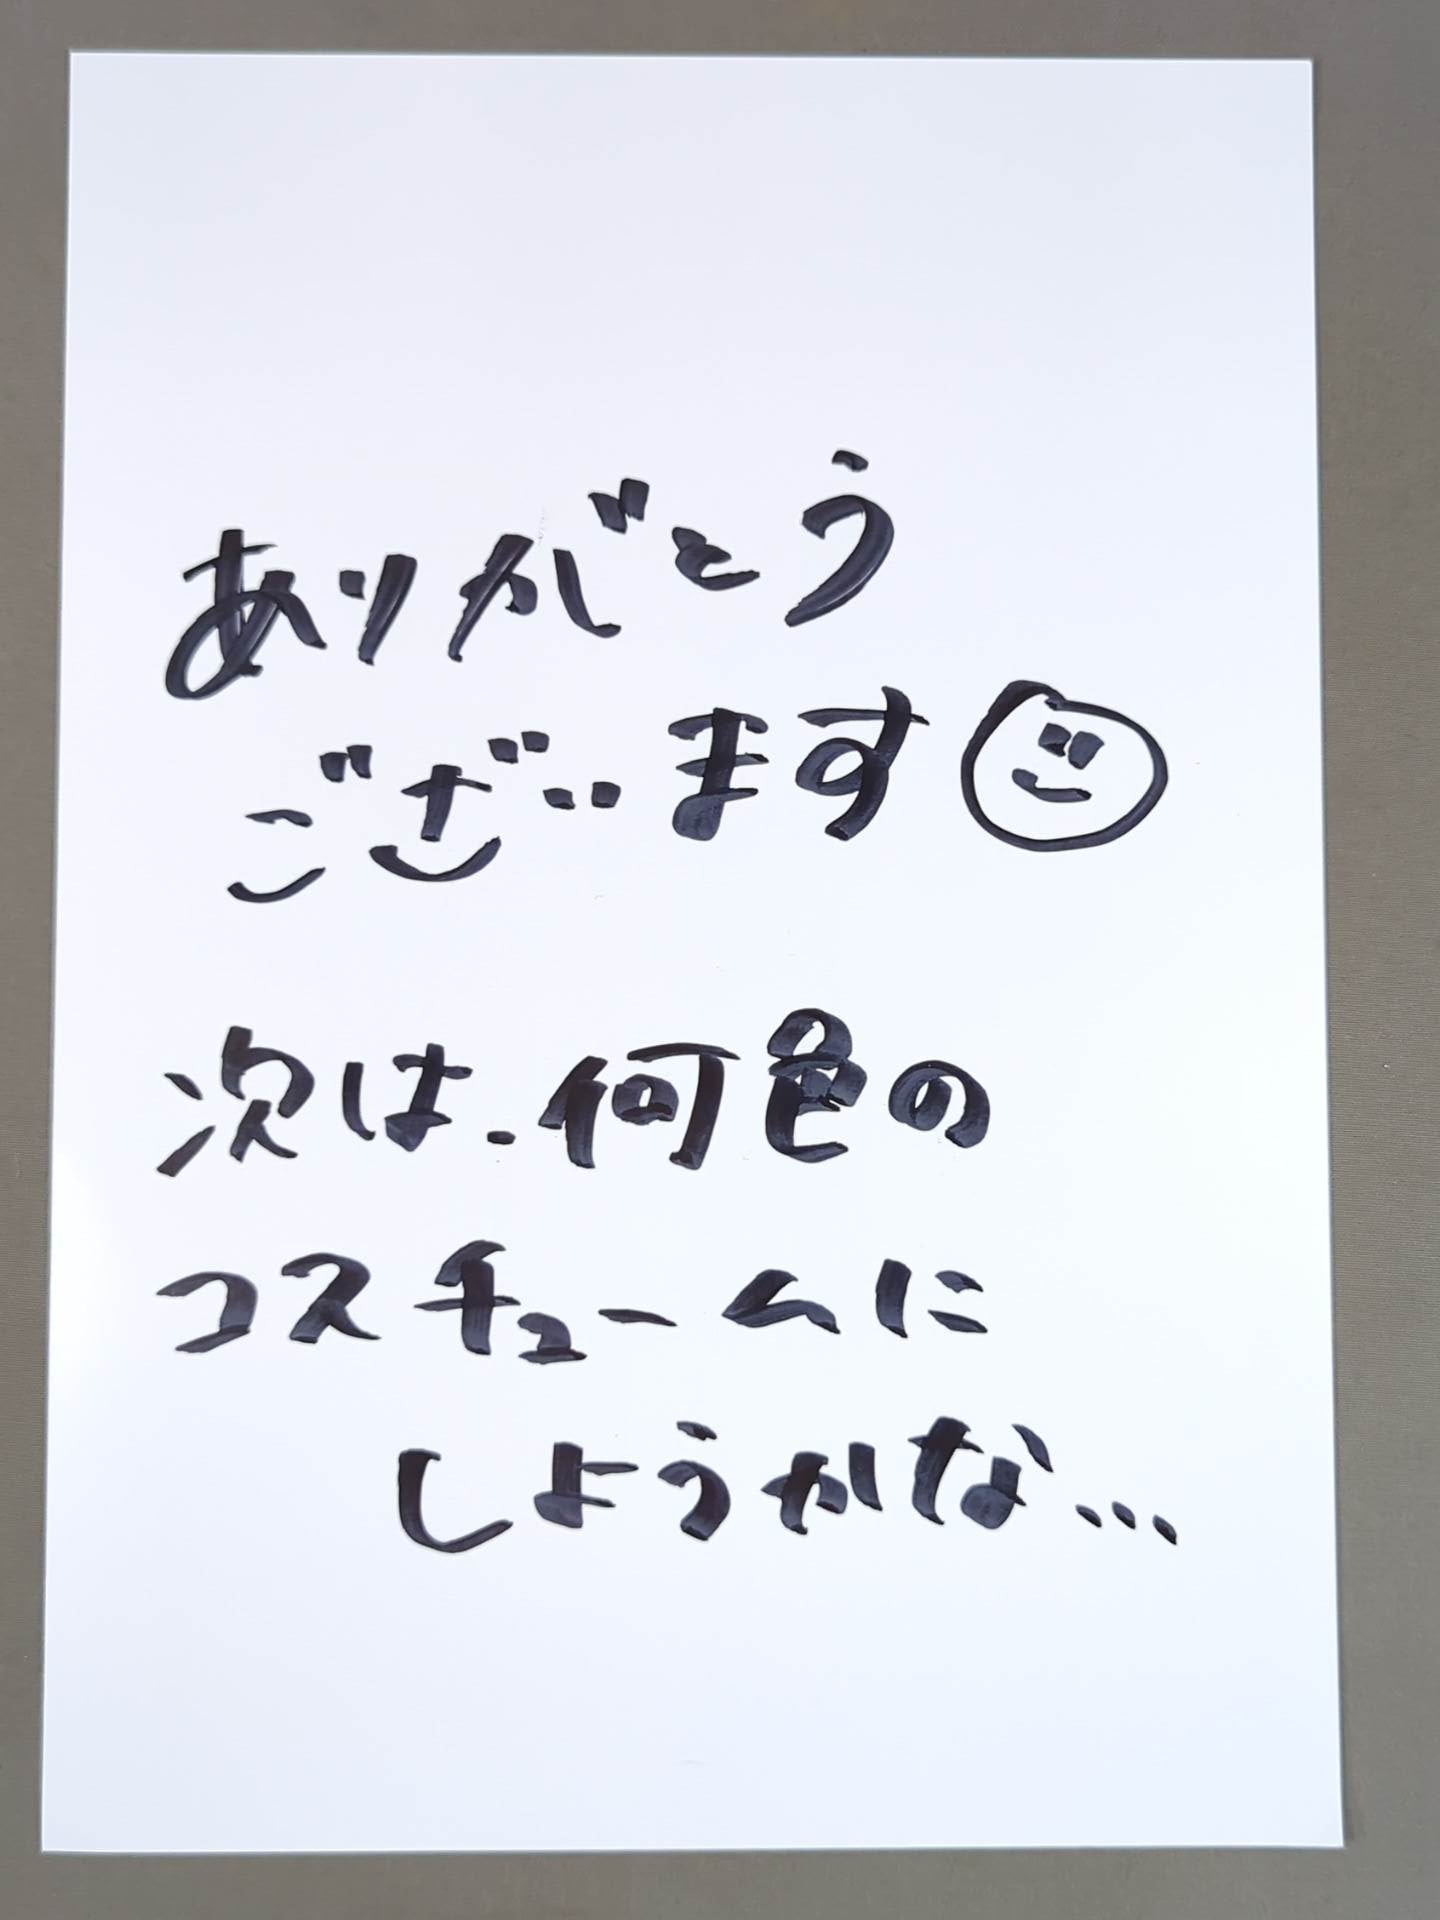 ありがとう
ございます
次は、何色の
コスチュームに
しようかな...